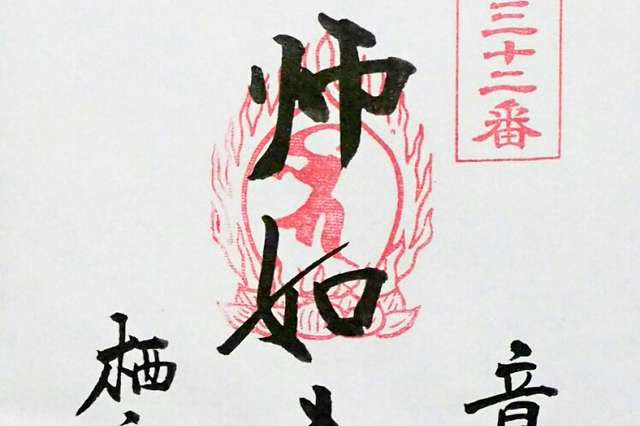 三十二番
师如
栖
音